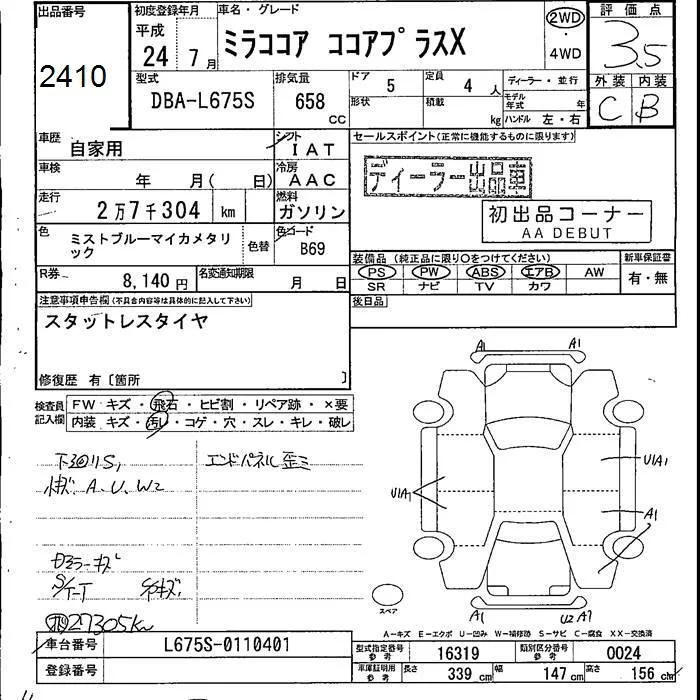 出品番号
2410
初度登録年月
平成
24 7月
車名・グレード
ミラココア ココアプラスX
2WD
・
4WD
評価点
3.5
外装 内装
C B
型式
DBA-L675S
排気量
658
CC
ドア 5
定員 4 人
ディーラー・並行
形状
積載 kg
モデル年式 年
ハンドル 左・右
車歴 自家用
シフト IAT
車検 年 月( 日)
冷房 AAC
走行 2万7千304 km
燃料 ガソリン
色 ミストブルーマイカメタリック
色替
色コード B69
R券 8,140円
名変通知期限 月 日
セールスポイント(正常に機能するものに限ります)
ディーラー出品車
初出品コーナー
AA DEBUT
装備品 (純正品に限り○をつけてください)
新車保証書
PS PW ABS エアB AW
SR ナビ TV カワ
有・無
後日品
注意事項申告欄(不具合内容等は具体的に記入して下さい)
スタットレスタイヤ
修復歴 有〔箇所 〕
検査員記入欄
FW キズ・飛石・ヒビ割・リペア跡・×要
内装 キズ・汚レ・コゲ・穴・スレ・キレ・破レ
エンドパネル歪ミ
小キズ A、U、W2
27305Km
A1 A1
U1A1
U1A1
A1
A1 U2 A1
スペア
A-キズ E-エクボ U-凹み W-補修跡 S-サビ C-腐食 XX-交換済
車台番号 L675S-0110401
登録番号
型式指定番号 参考 16319
類別区分番号 参考 0024
車庫証明用 参考 長さ 339cm 幅 147cm 高さ 156cm